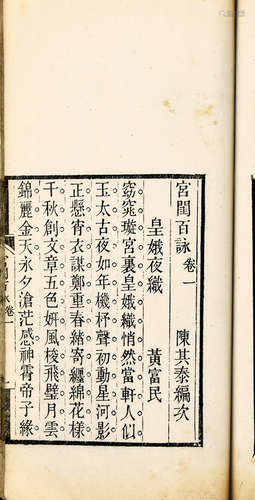 宮閨百詠 卷一 陳其泰編次
皇娥夜織 黃富民
窈窕璇宮裏皇娥織悄然當軒人似
玉太古夜如年機杼聲初動星河影
正懸宵衣謀鄭重春綺寄纏綿花樣
千秋創文章五色妍風梭飛璧月雲
錦麗金天永夕滄茫感神霄帝子緣
詠卷一